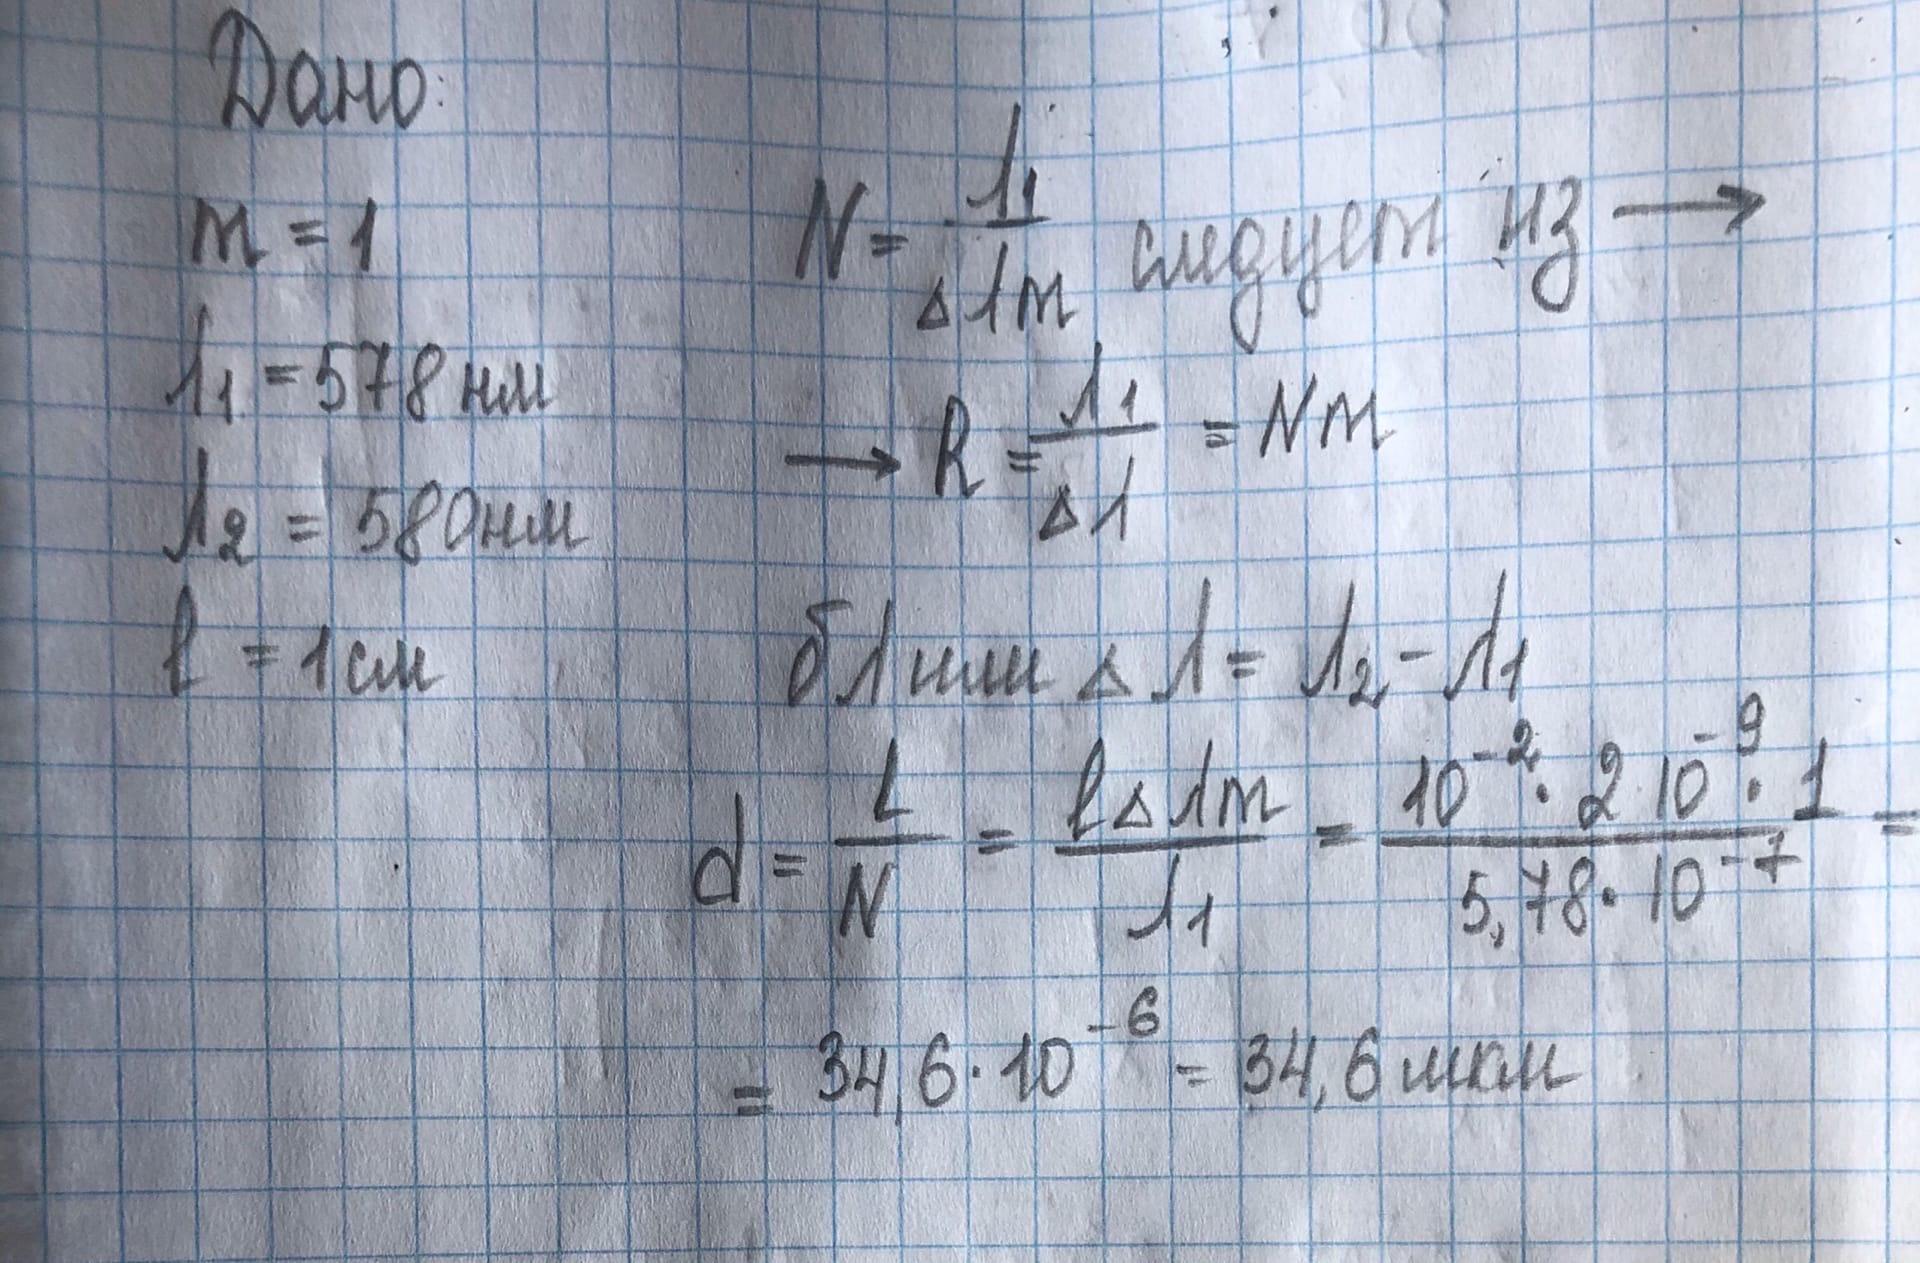 Дано:
m = 1
λ1 = 578 нм
λ2 = 580 нм
l = 1 см
N = λ1 / Δλm следует из →
→ R = λ1 / Δλ = Nm
δλ или Δλ = λ2 - λ1
d = L / N = lΔλm / λ1 = 10^-2 · 2 · 10^-9 · 1 / 5,78 · 10^-7 =
= 34,6 · 10^-6 = 34,6 мкм